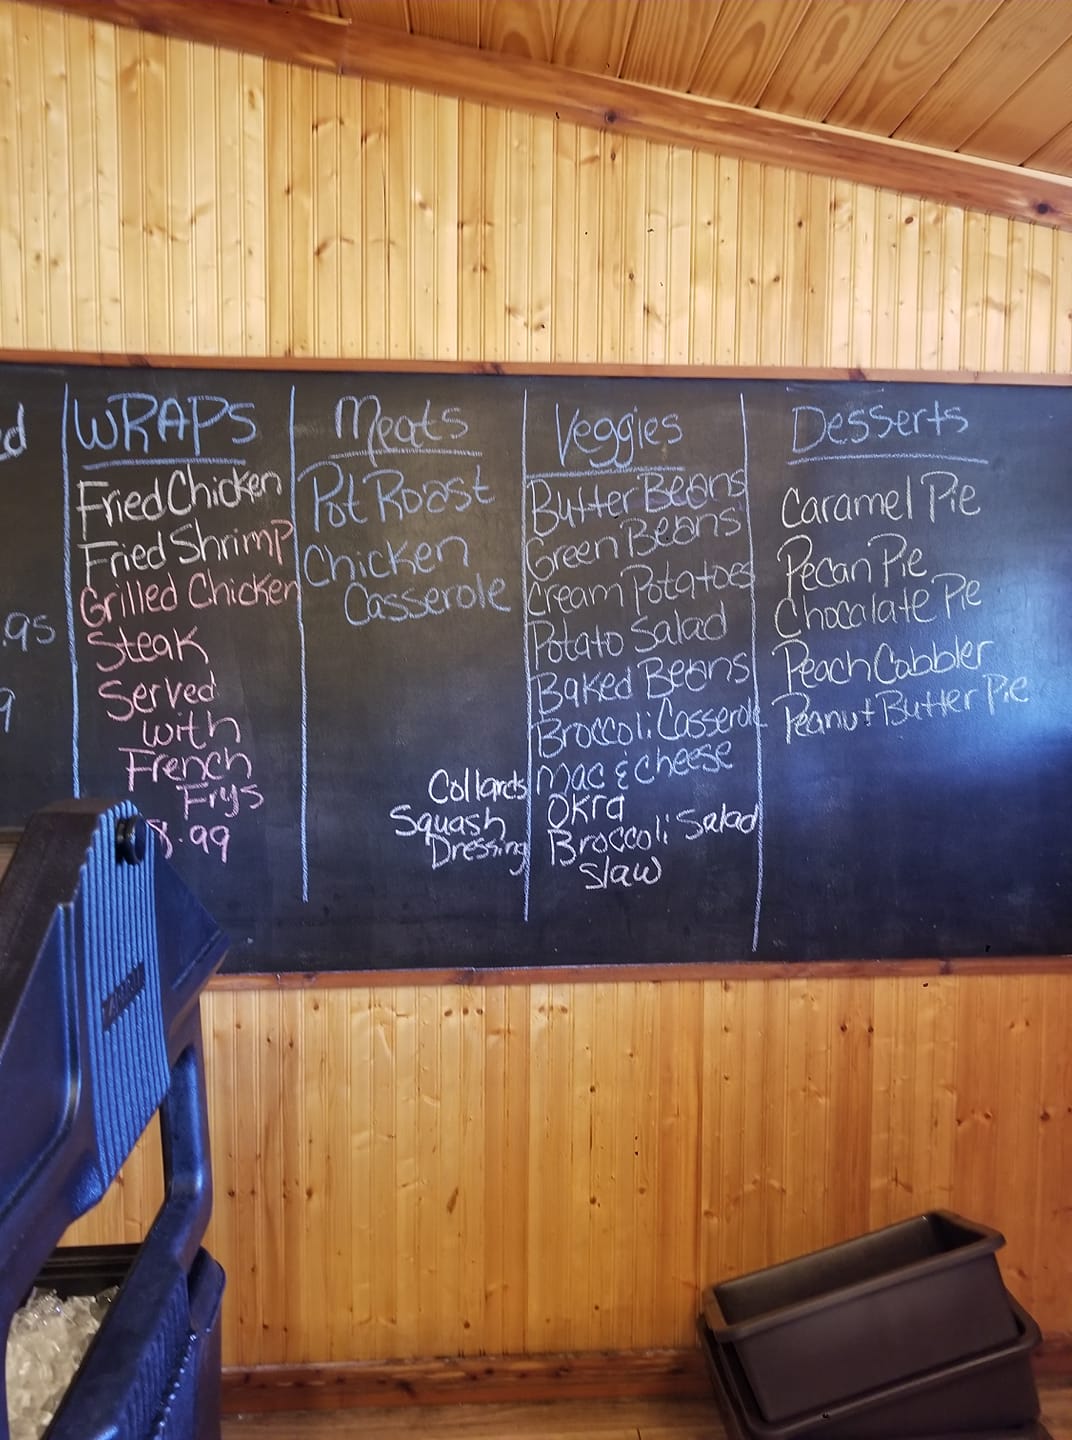 ed
.95
9
WRAPS
Fried Chicken
Fried Shrimp
Grilled Chicken
Steak
Served
with
French
Frys
8.99
Meats
Pot Roast
Chicken
Casserole
Collards
Squash
Dressing
Veggies
Butter Beans
Green Beans
Cream Potatoes
Potato Salad
Baked Beans
Broccoli Casserole
Mac & cheese
Okra
Broccoli Salad
Slaw
Desserts
Caramel Pie
Pecan Pie
Chocalate Pie
Peach Cobbler
Peanut Butter Pie